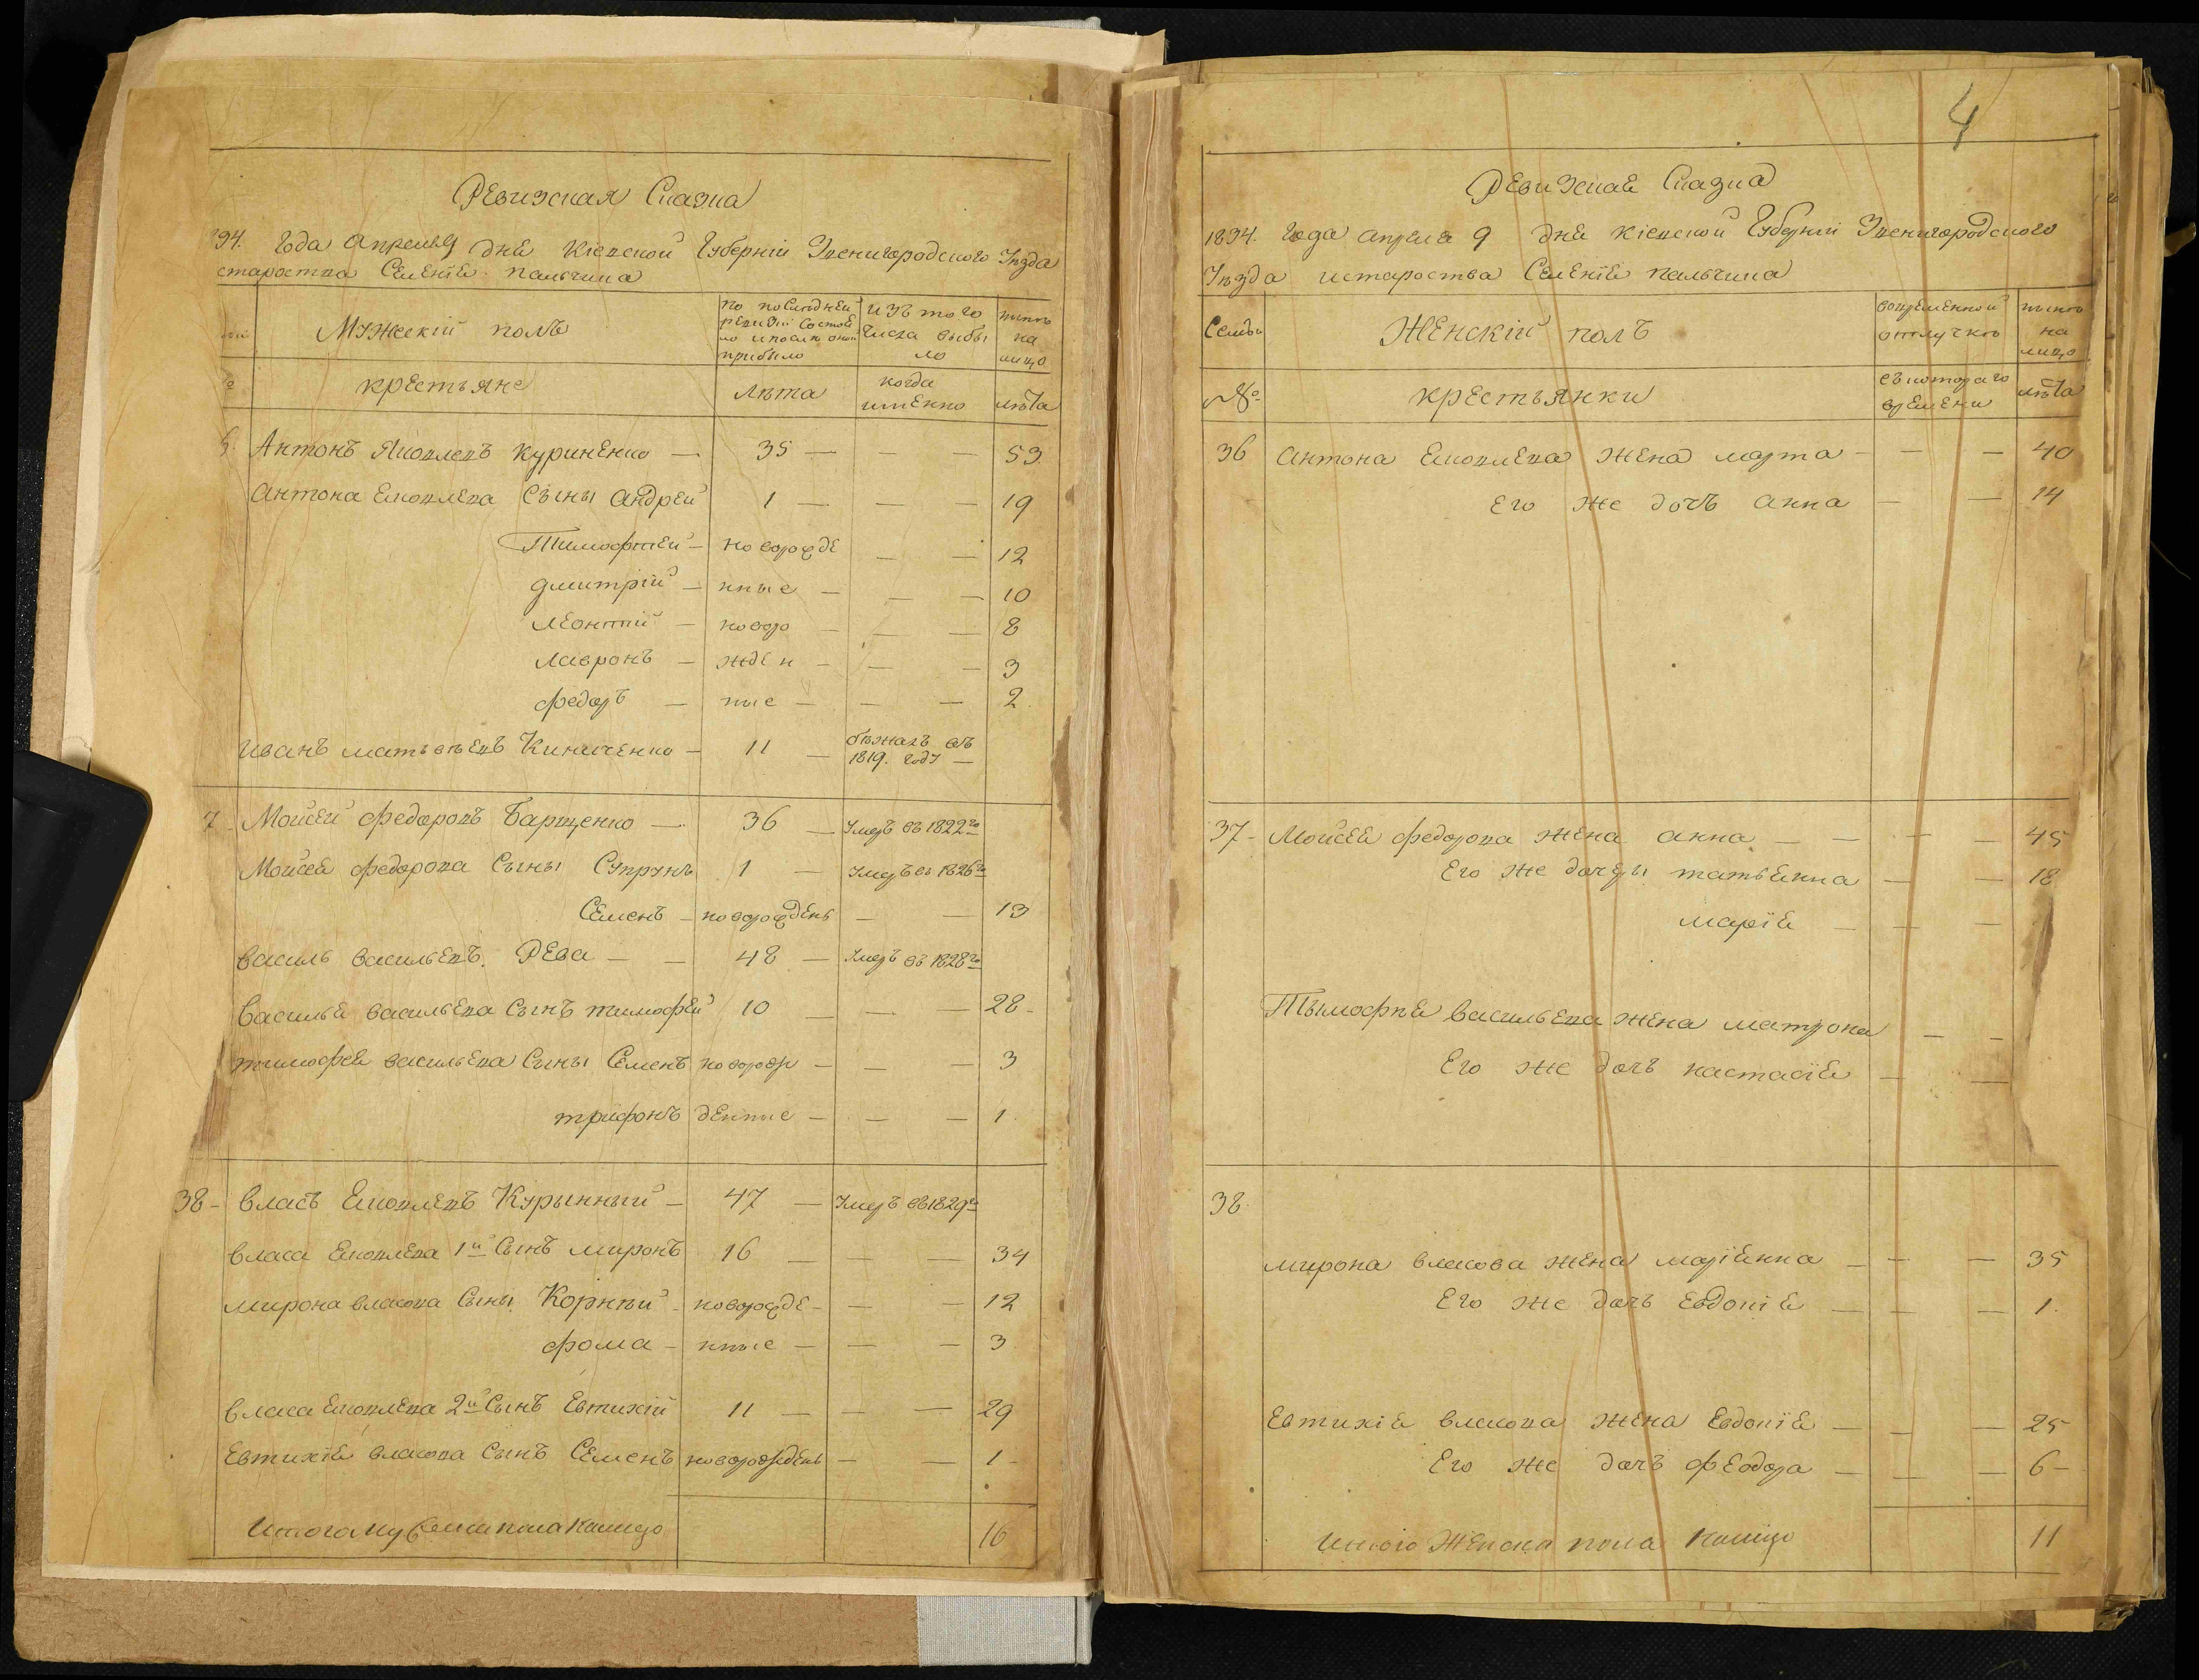 Ревизская Сказка
Года Апреля 9 дня Кіевской Губерніи Звенигородского Уезда
староства Селеніе Пальчика
Мужескій полъ
по последней
ревизіи состоя
ло и после оной
прибыло
изъ того
числа выбы
ло
ныне
на
лицо
крестьяне
лета
когда
именно
лета
Антонъ Яковлевъ Куриненко — 35 — — — 53
Антона Яковлева Сыны Андрей 1 — — — 19
Тимофтей — новорожде — — 12
Дмитрій — нные — — — 10
Леонтій — новоро — — — 8
Лавронъ — жден — — — 3
Федоръ — ные — — — 2
Иванъ Матвеевъ — 11 — бежалъ въ
1819. году —
7 Мойсей Федоровъ Барщенко — 36 — Умеръ въ 1822го
Мойсея Федорова Сыны Супрунъ 1 — Умеръ въ 1826го
Семенъ — новорожденъ — — 13
Василь Васильевъ Рева — — 48 — Умеръ въ 1828го
Василья Васильева Сынъ Тимофей 10 — — — 28
Тимофея Васильева Сыны Семенъ новорож — — — 3
Трифонъ денные — — — 1
38 — Власъ Яковлевъ Курынный — 47 — Умеръ въ 1829го
Власа Яковлева 1й Сынъ Миронъ 16 — — — 34
Мирона Власова Сыны Корней — новорожде — — — 12
Фома — нные — — — 3
Власа Яковлева 2й Сынъ Евтихій 11 — — — 29
Евтихія Власова Сынъ Семенъ новорожденъ — — 1
Итого пола налицо 16
4
Ревизская Сказка
1834. Года Апреля 9 дня Кіевской Губерніи Звенигородского
Уезда и староства Селенія Пальчика
Семьи
Женскій полъ
во временной
отлучке
ныне
на
лицо
№
крестьянки
съ котораго
времени
лета
36 Антона Яковлева жена Марта — — — 40
Его же дочь Анна — — 14
37 — Мойсея Федорова жена Анна — — — 45
Его же дочеры Татьянна — — 18
Марія — — —
Тымофея Васильева жена Матрона — —
Его же дочь Настасія — —
38
Мирона Власова жена Маріянна — — — 35
Его же дочь Евдокія — — — 1
Евтихія Власова жена Евдокія — — — 25
Его же дочь Феодора — — — 6 —
Итого женска пола налицо 11